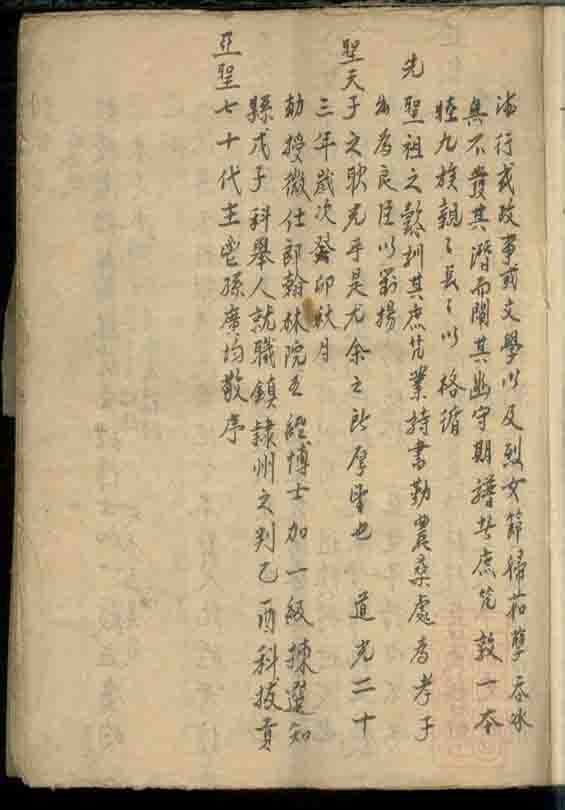 德行或政事或文學以及烈女節婦茹蘗吞冰
莫不發其潛而闡其幽守期譜共庶凭敦一本
睦九族親之長之以恪循
先聖祖之懿訓其庶凭業持書勤農桑處為孝子
出為良臣以對揚
聖天子之耿光乎是尤余之所厚望也 道光二十
三年歲次癸卯秋月
勅授徵仕郎翰林院五經博士加一級揀選知
縣戊子科舉人就職鎮隸州之判乙酉科拔貢
亞聖七十代主鬯孫廣均敬序